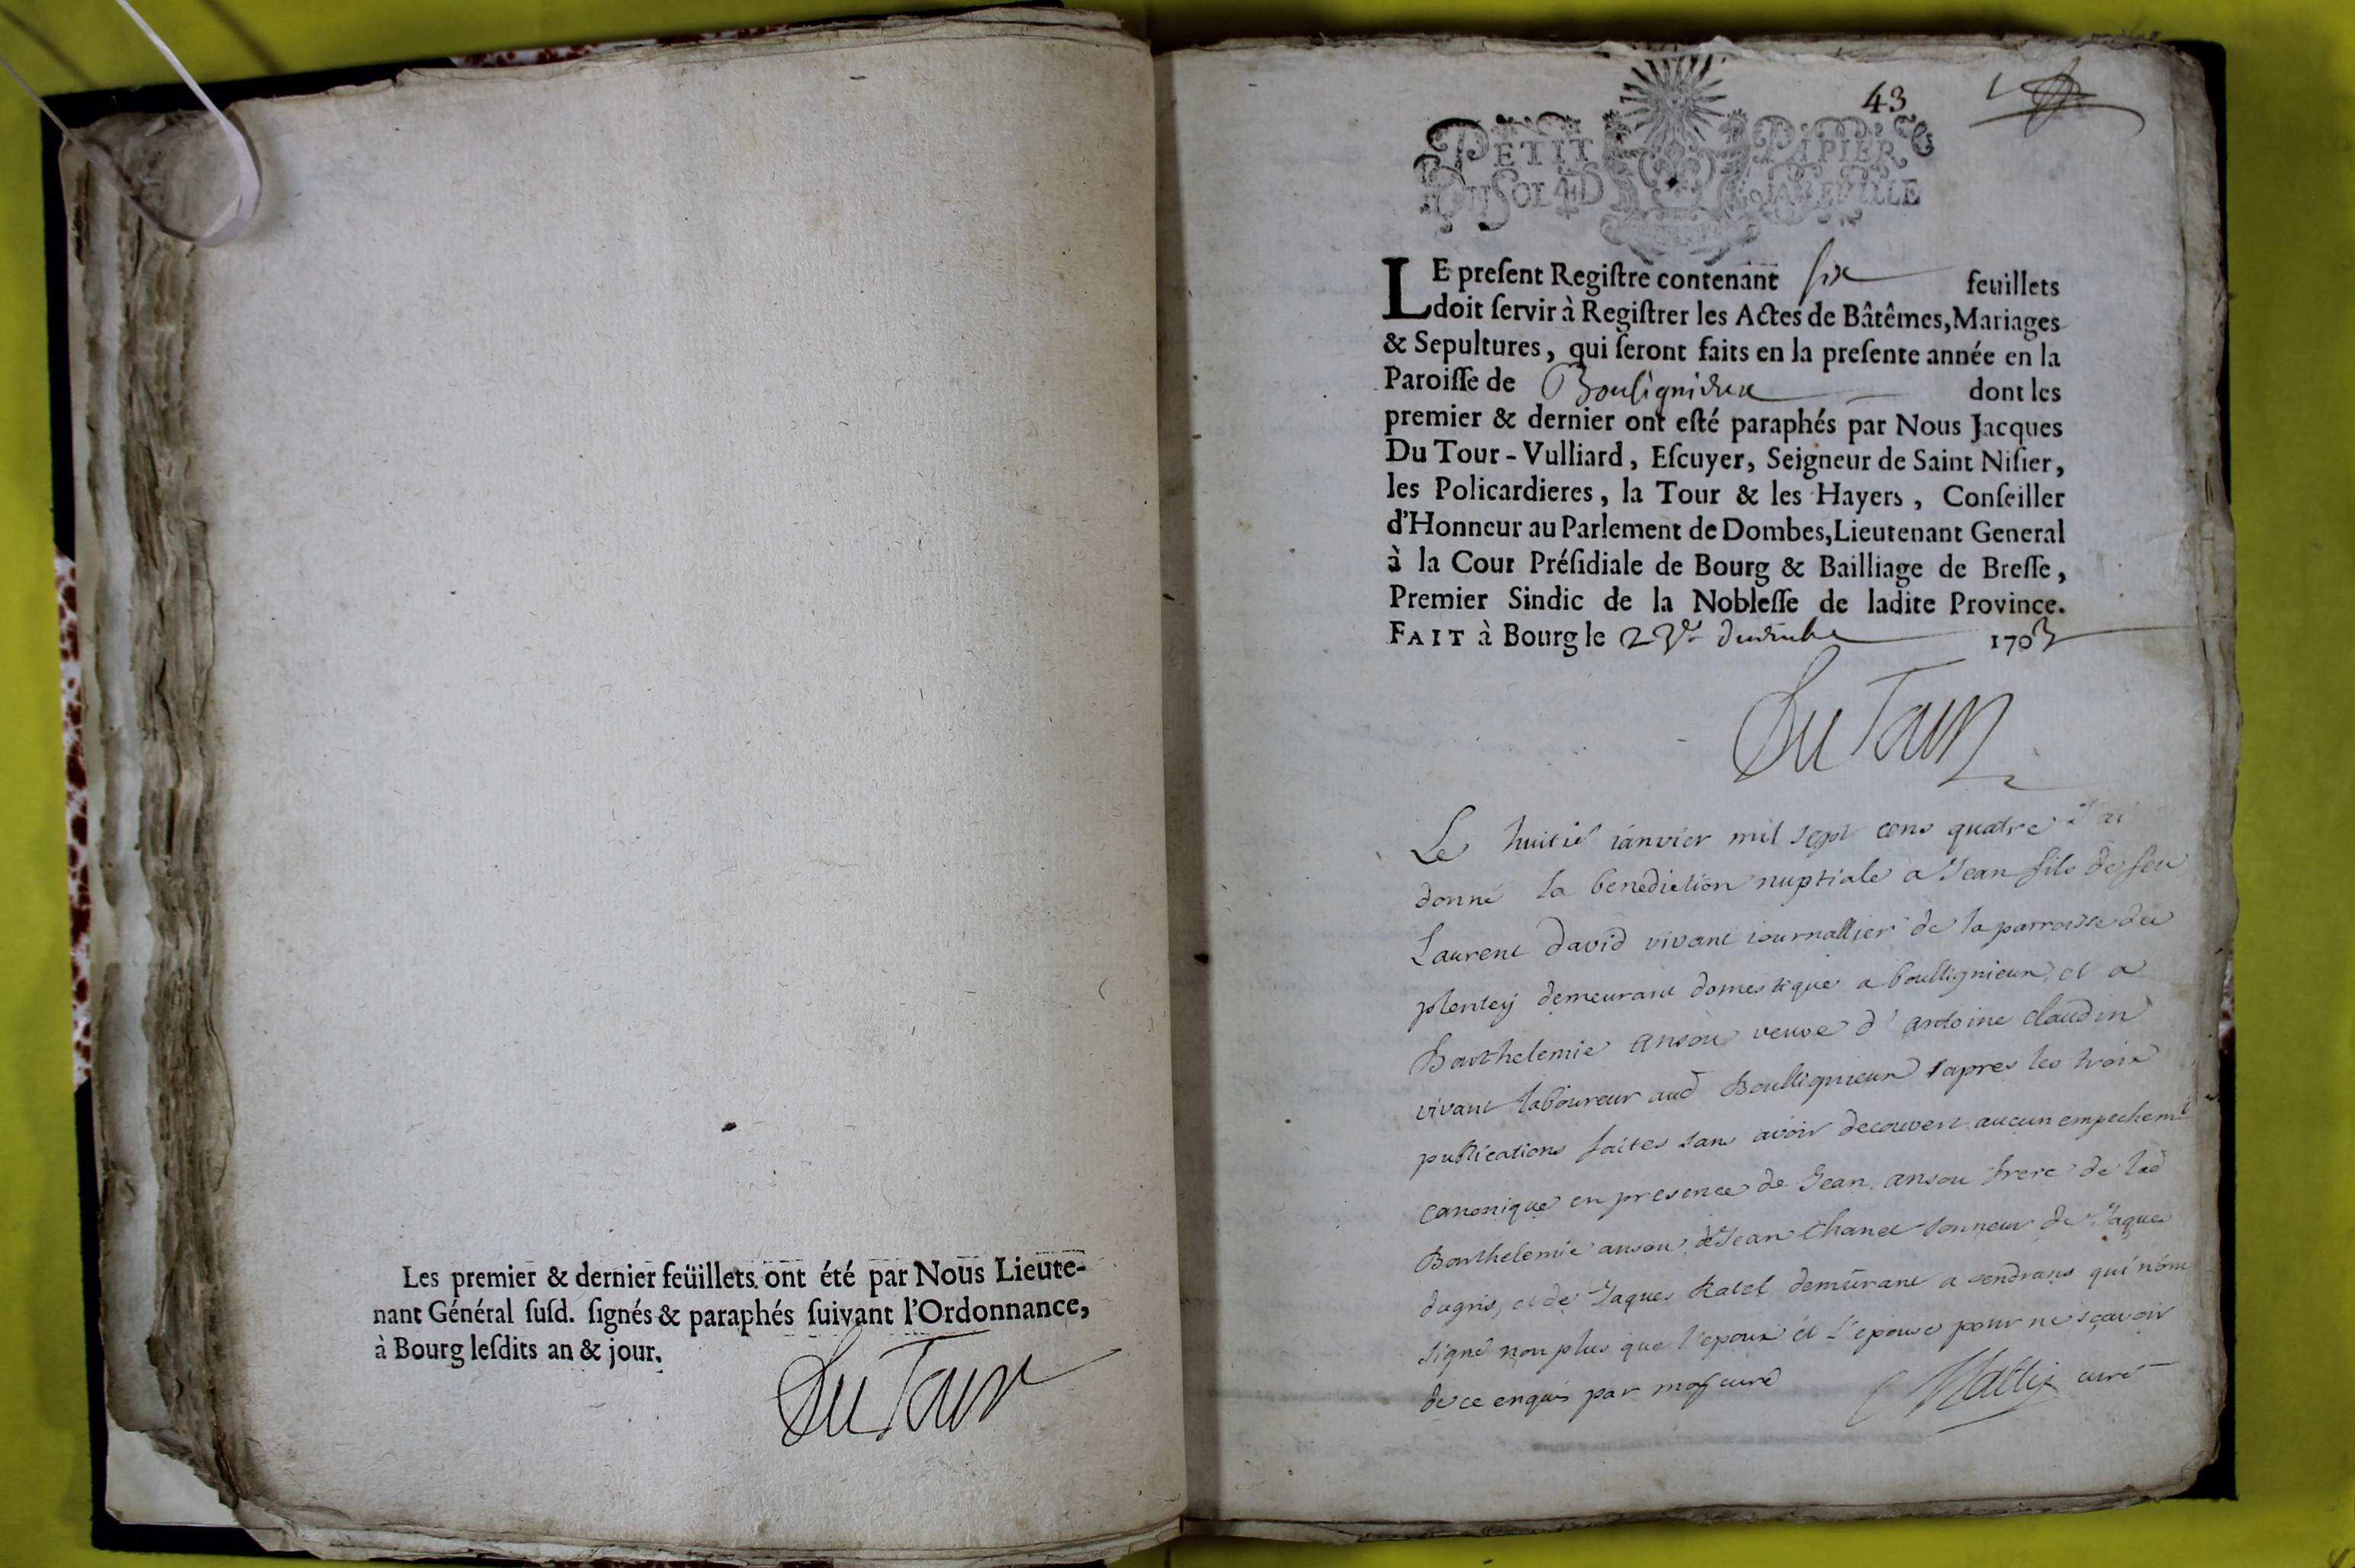 Les premier & dernier feüillets ont été par Nous Lieute-
nant Général suſd. ſignés & paraphés ſuivant l'Ordonnance,
à Bourg leſdits an & jour.
Du Tour
43
PETIT PAPIER
DU SOL 4 D LA FEUILLE
LE preſent Regiſtre contenant six feuillets
doit ſervir à Regiſtrer les Actes de Bâtêmes, Mariages
& Sepultures, qui ſeront faits en la preſente année en la
Paroiſſe de Boulignieux dont les
premier & dernier ont eſté paraphés par Nous Jacques
Du Tour-Vulliard, Eſcuyer, Seigneur de Saint Niſier,
les Policardieres, la Tour & les Hayers, Conſeiller
d'Honneur au Parlement de Dombes, Lieutenant General
à la Cour Préſidiale de Bourg & Bailliage de Breſſe,
Premier Sindic de la Nobleſſe de ladite Province.
FAIT à Bourg le 1703
Du Tour
Le huitie ianvier mil sept cens quatre i'ai
donné la benediction nuptiale a Jean fils de feu
Laurent david vivant iournallier de la parroisse du
plentey demeurant domestique a boullignieux et a
Barthelemie ansou veuve d'antoine claudin
vivant laboureur aud Boullignieux apres les trois
publications faites sans avoir decouvert aucun empechemt
canonique en presence de Jean ansou frere de lad
Barthelemie ansou de Jean Chanel sonneur de Jaques
dagris, et de Jaques Ratel demeurant a sendrans qui n'ont
signé non plus que l'epoux et l'epouse pour ne sçavoir
de ce enquis par moy curé
curé